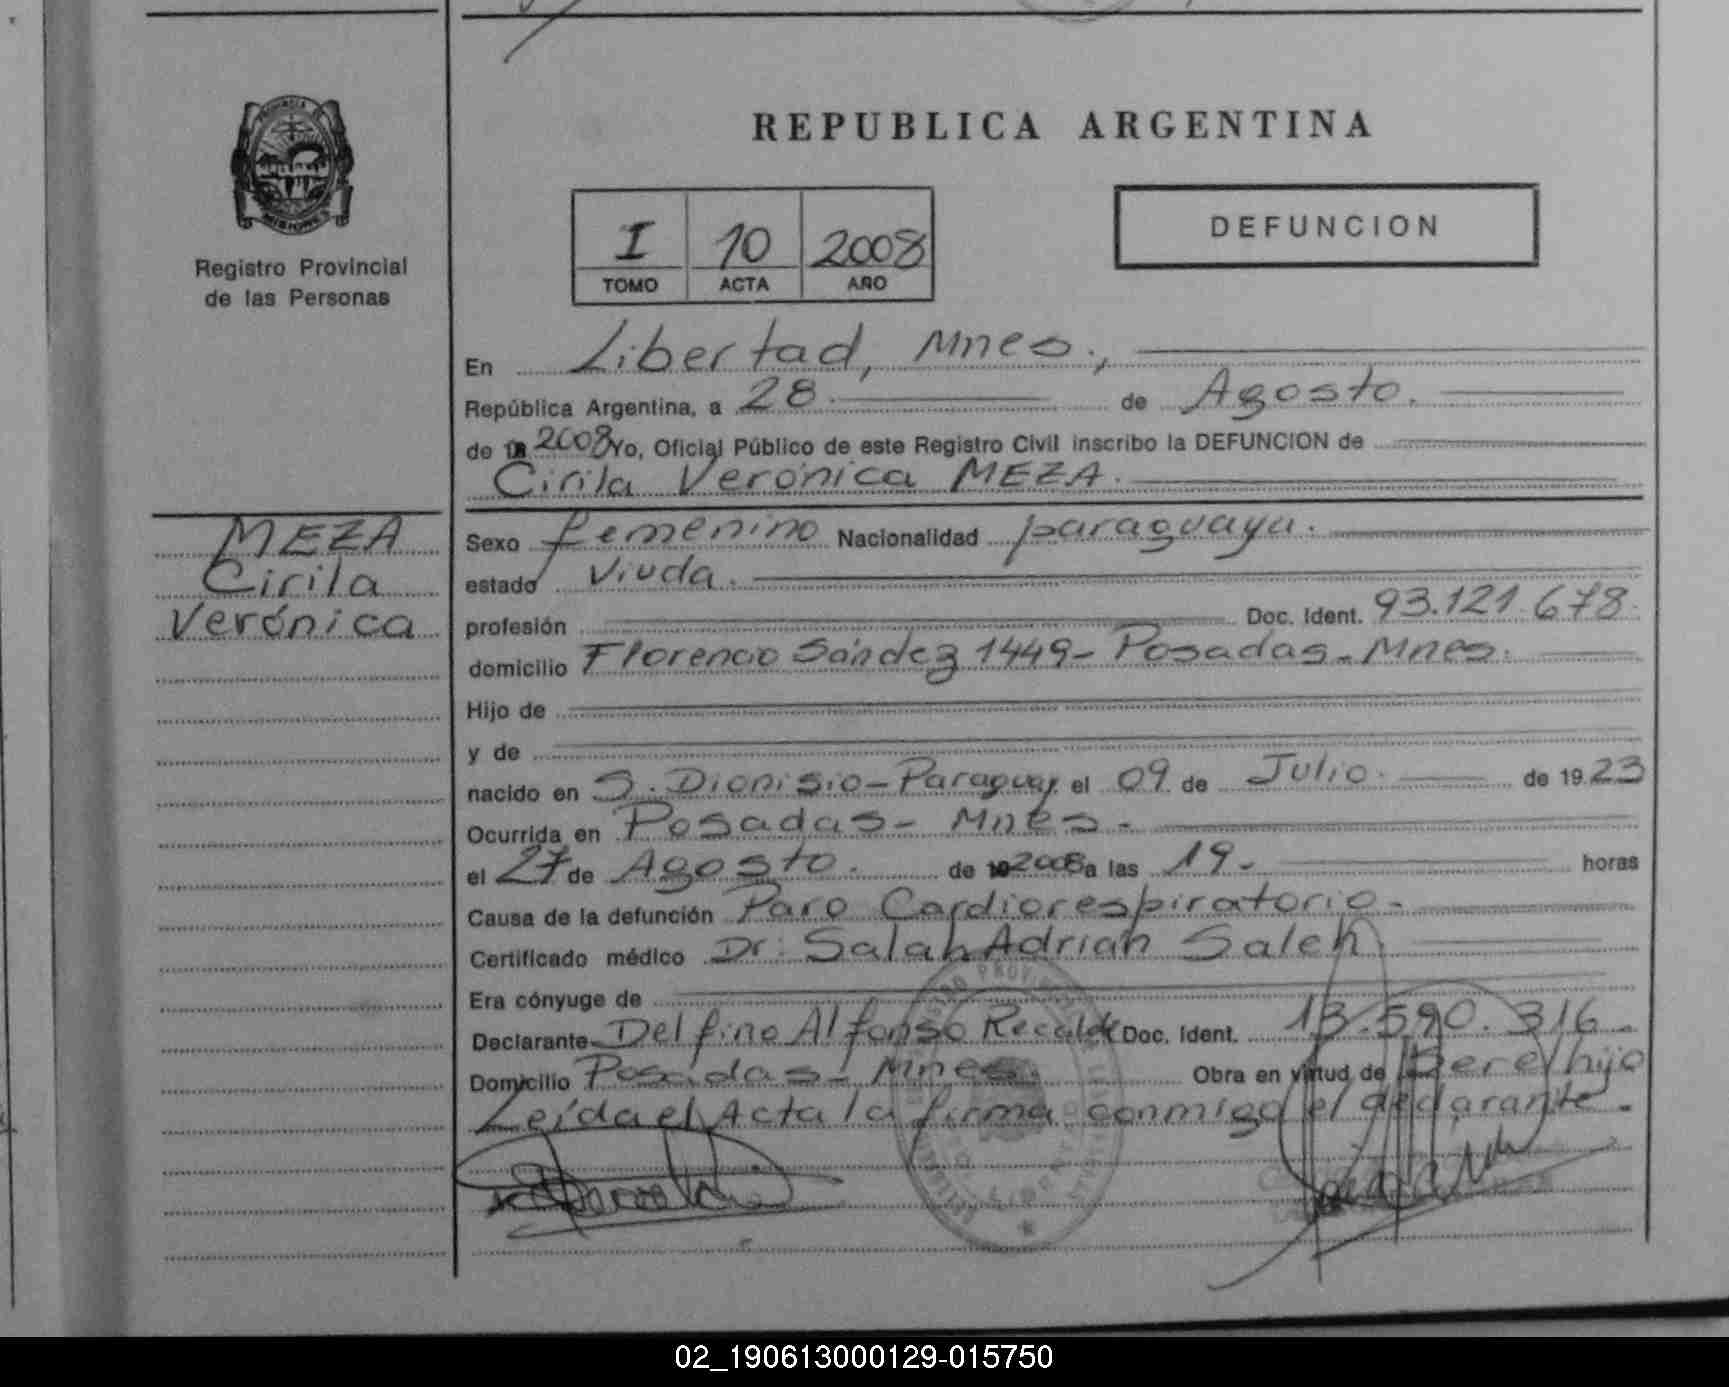 REPUBLICA ARGENTINA
PROVINCIA
MISIONES
Registro Provincial
de las Personas
I 10 2008
TOMO ACTA AÑO
DEFUNCION
En Libertad, Mnes.,
República Argentina, a 28 de Agosto.
de 2008 Yo, Oficial Público de este Registro Civil inscribo la DEFUNCION de
Cirila Verónica MEZA.
MEZA
Cirila
Verónica
Sexo femenino Nacionalidad paraguaya.
estado Viuda.
profesión Doc. Ident. 93.121.678.
domicilio Florencio Sández 1449- Posadas-Mnes.
Hijo de
y de
nacido en S. Dionisio-Paraguay. el 09 de Julio. de 1923
Ocurrida en Posadas- Mnes-
el 27 de Agosto. de 2008 a las 19. horas
Causa de la defunción Paro Cardiorespiratorio-
Certificado médico Dr: Salah Adrian Saleh
Era cónyuge de
Declarante Delfino Alfonso Recalde Doc. Ident. 13.590.316.
Domicilio Posadas- Mnes. Obra en virtud de Ser el hijo
Leída el Acta la firma conmigo el declarante.
02_190613000129-015750